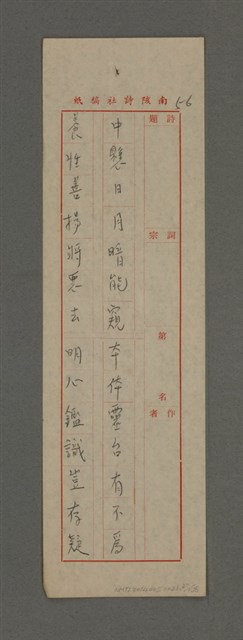 南陔詩社稿紙
5-6
詩題
詞宗
箱名
作者
中懸日月暗能窺本体靈台有不為
養性善揚將惡去明心鑑識豈存疑